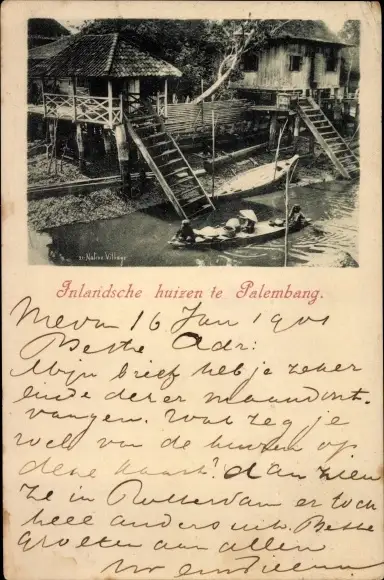 21. Native Village
Inlandsche huizen te Palembang.
16 Jan 1901
Beste Adr:
Mijn brief heb je zeker
einde der er maand ont-
vangen. Wat zeg je
wel van de huizen op
deze kaart? dan zien
ze in Rotterdam er toch
heel anders uit. Beste
groeten aan allen